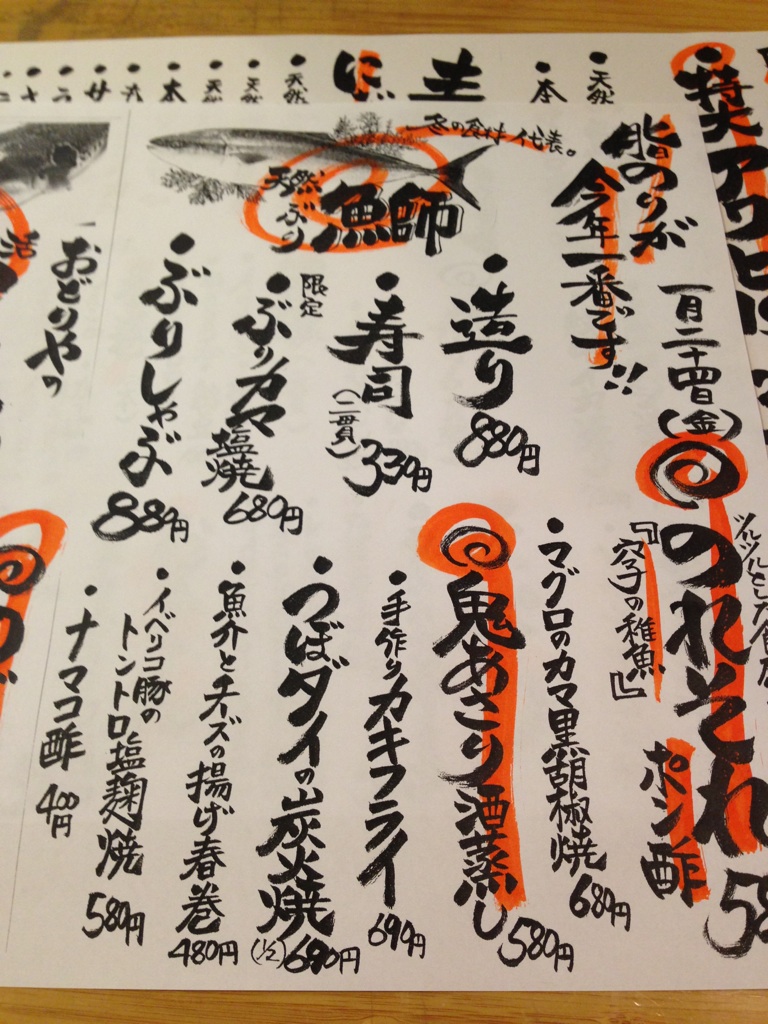 特大アワビ
脂のりが
今年一番です!!
冬の食材代表。
天然ぶり
魚師
一月二十四日(金)
造り 880円
寿司 (二貫) 330円
限定
ぶりカマ塩焼 680円
ぶりしゃぶ 880円
のれそれ
『穴子の稚魚』
ポン酢
マグロのカマ黒胡椒焼 680円
鬼あさり酒蒸し 580円
手作りカキフライ 690円
つぼダイの炭火焼 (½)690円
魚介とチーズの揚げ春巻 480円
イベリコ豚の
トントロ塩麹焼 580円
ナマコ酢 400円
おどりやの